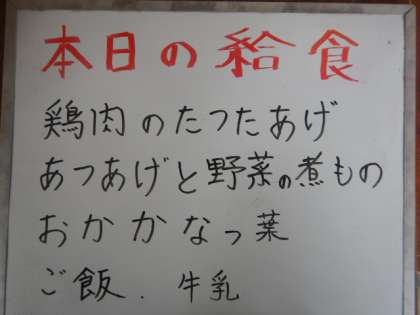 本日の給食
鶏肉のたつたあげ
あつあげと野菜の煮もの
おかかなっ葉
ご飯. 牛乳